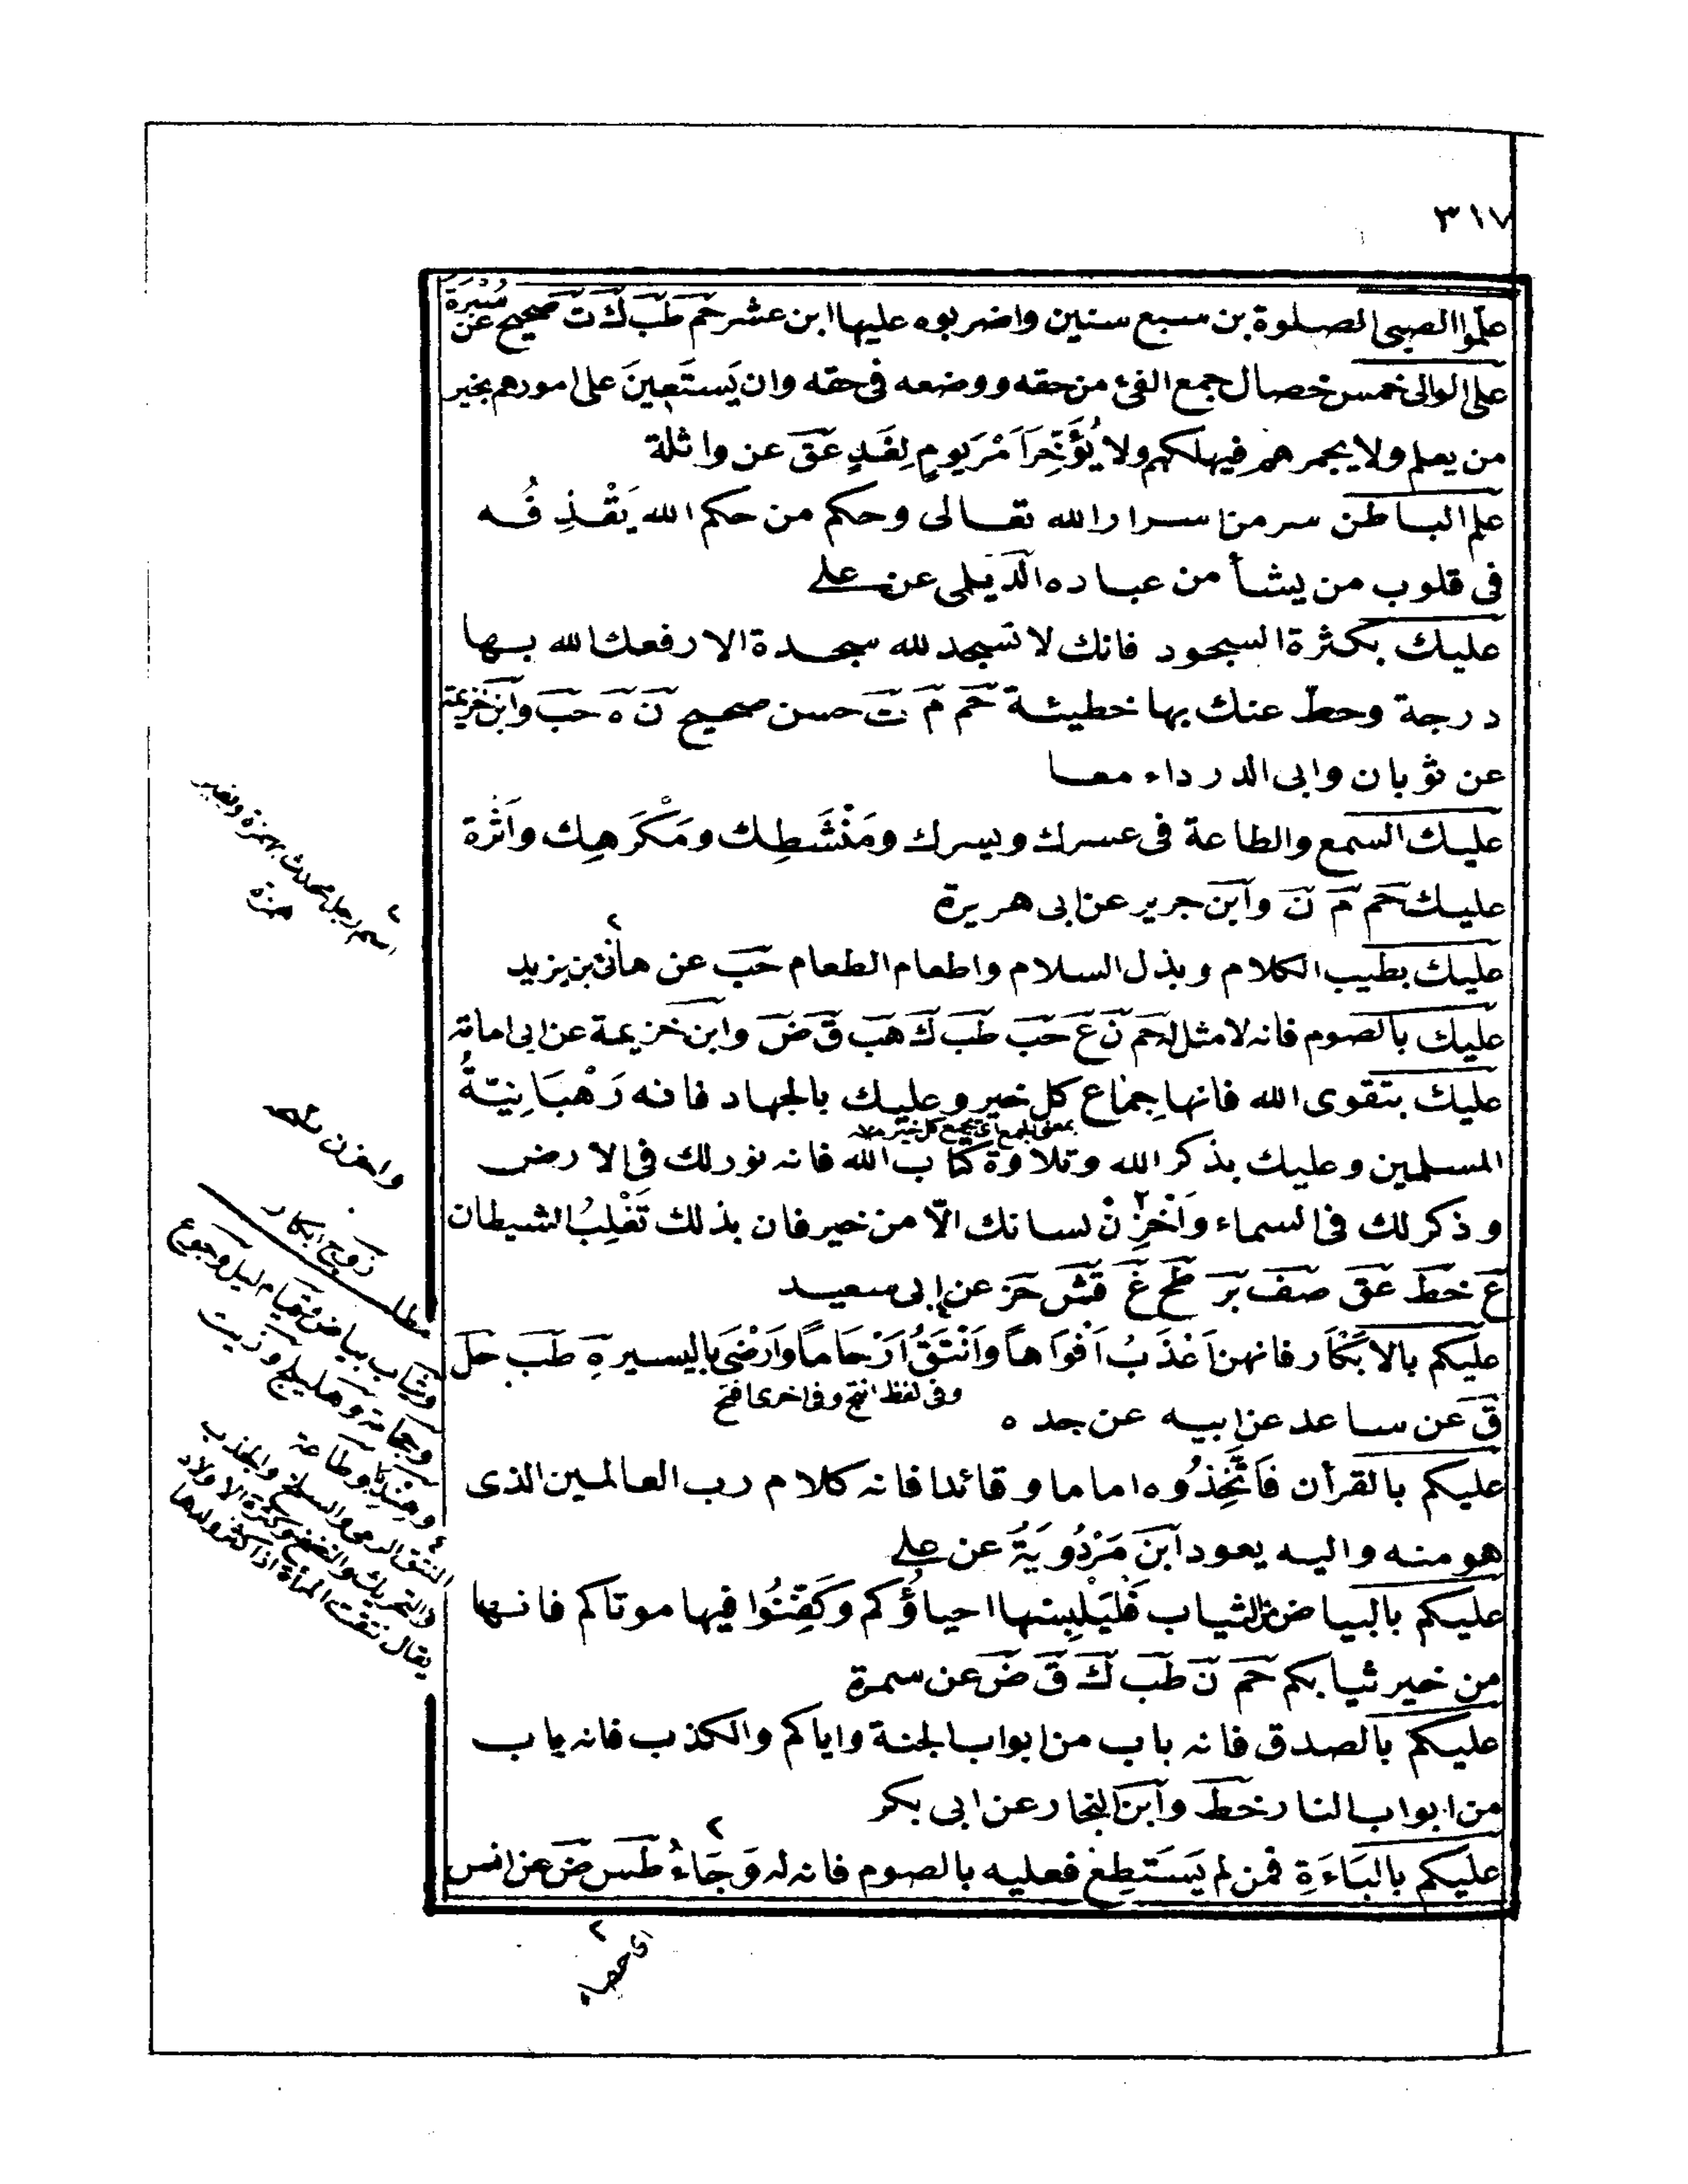 ٣١٧
علّموا الصبى الصلوة بن سبع سنين واضربوه عليها ابن عشر حم طب ك ت صحيح عن سُبْرَة
على الوالى خمس خصال جمع الفئ من حقه ووضعه فى حقه وان يَستَعِينَ على امورهم بخير
من يعلم ولا يجمرهم فيهلكهم ولا يُؤَخِّرَ اَمْرَ يومٍ لِغَدٍ عق عن واثلة
علم الباطن سر من اسرار الله تعالى وحكم من حكم الله يَقْذِفُه
فى قلوب من يشأ من عباده الديلمى عن على
عليك بكثرة السجود فانك لا تسجد لله سجدة الا رفعك الله بها
درجة وحطّ عنك بها خطيئة حم م ت حسن صحيح ن ه حب وابن خزيمة
عن ثوبان وابى الدرداء معا
عليك السمع والطاعة فى عسرك ويسرك ومَنْشَطِك ومَكْرَهِك واَثرة
عليك حم م ن وابن جرير عن ابى هريرة
عليك بطيب الكلام وبذل السلام واطعام الطعام حب عن هانئ بن يزيد
عليك بالصوم فانه لا مثل له حم ن ع حب طب ك هب ق ض وابن خزيمة عن ابى امامة
عليك بتقوى الله فانها جِماع كل خير وعليك بالجهاد فانه رَهْبَانِيّةُ
بمعنى الجمع اى يجمع كل خير
المسلمين وعليك بذكر الله وتلاوة كتاب الله فانه نور لك فى الارض
وذكر لك فى السماء وَاَخْزِنْ لسانك الّا من خير فان بذلك تَغْلِبُ الشيطان
ع خط عق صف بر طح غ قش حز عن ابى سعيد
عليكم بالاَبْكَار فانهن اَعْذَبُ اَفْوَاهاً وَاَنْتَقُ اَرْحَاماً وَاَرْضَى باليسيرِ ه طب حل
وفى لفظ انتج وفى اخرى افتح
ق عن ساعد عن ابيه عن جده
عليكم بالقرأن فَاتَّخِذُوه اماما وقائدا فانه كلام رب العالمين الذى
هو منه واليه يعود ابن مَرْدُويَةَ عن على
عليكم بالبياض من الثياب فَليَلْبسْها احياؤُكم وكَفِّنُوا فيها موتاكم فانها
من خير ثيابكم حم ن طب ك ق ض عن سمرة
عليكم بالصدق فانه باب من ابواب الجنة واياكم والكذب فانه باب
من ابواب النار خط وابن النجار عن ابى بكر
عليكم بالبَاءَةِ فمن لم يَستَطِعْ فعليه بالصوم فانه له وَجَاءُ طس ض عن انس
اسم الرجل محدث بهمزة
همزة
واخزن
زوج ابكار
مطلب
وثياب بياض وقيام ليل وجوع
وحجامة وهليلج وزيت
وطاعة
النتق الرمى والسلخ والجذب
والتحريك والنفض وكثرة الاولاد
يقال نتقت المرأة اذا كثر ولدها